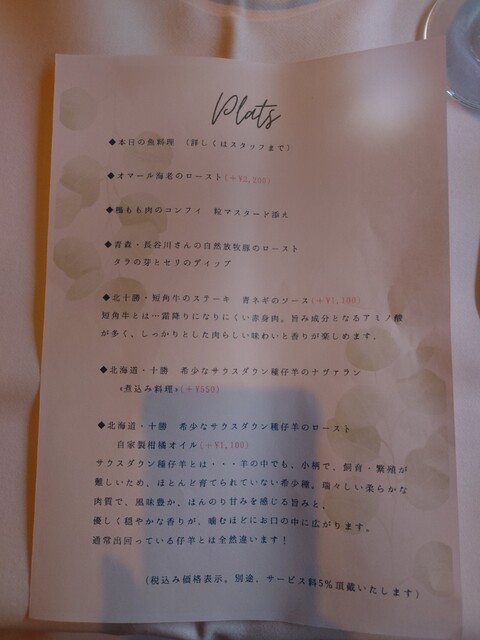 Plats
◆本日の魚料理 (詳しくはスタッフまで)
◆オマール海老のロースト(+¥2,200)
もも肉のコンフィ 粒マスタード添え
◆青森・長谷川さんの自然放牧豚のロースト
タラの芽とセリのディップ
◆北十勝・短角牛のステーキ 青ネギのソース(+¥1,100)
短角牛とは…霜降りになりにくい赤身肉。旨み成分となるアミノ酸
が多く、しっかりとした肉らしい味わいと香りが楽しめます。
◆北海道・十勝 希少なサウスダウン種仔羊のナヴァラン
<煮込み料理>(+¥550)
◆北海道・十勝 希少なサウスダウン種仔羊のロースト
自家製柑橘オイル(+¥1,100)
サウスダウン種仔羊とは・・・羊の中でも、小柄で、飼育・繁殖が
難しいため、ほとんど育てられていない希少種。瑞々しい柔らかな
肉質で、風味豊か、ほんのり甘みを感じる旨みと、
優しく穏やかな香りが、噛むほどにお口の中に広がります。
通常出回っている仔羊とは全然違います!
(税込み価格表示。別途、サービス料5%頂戴いたします)